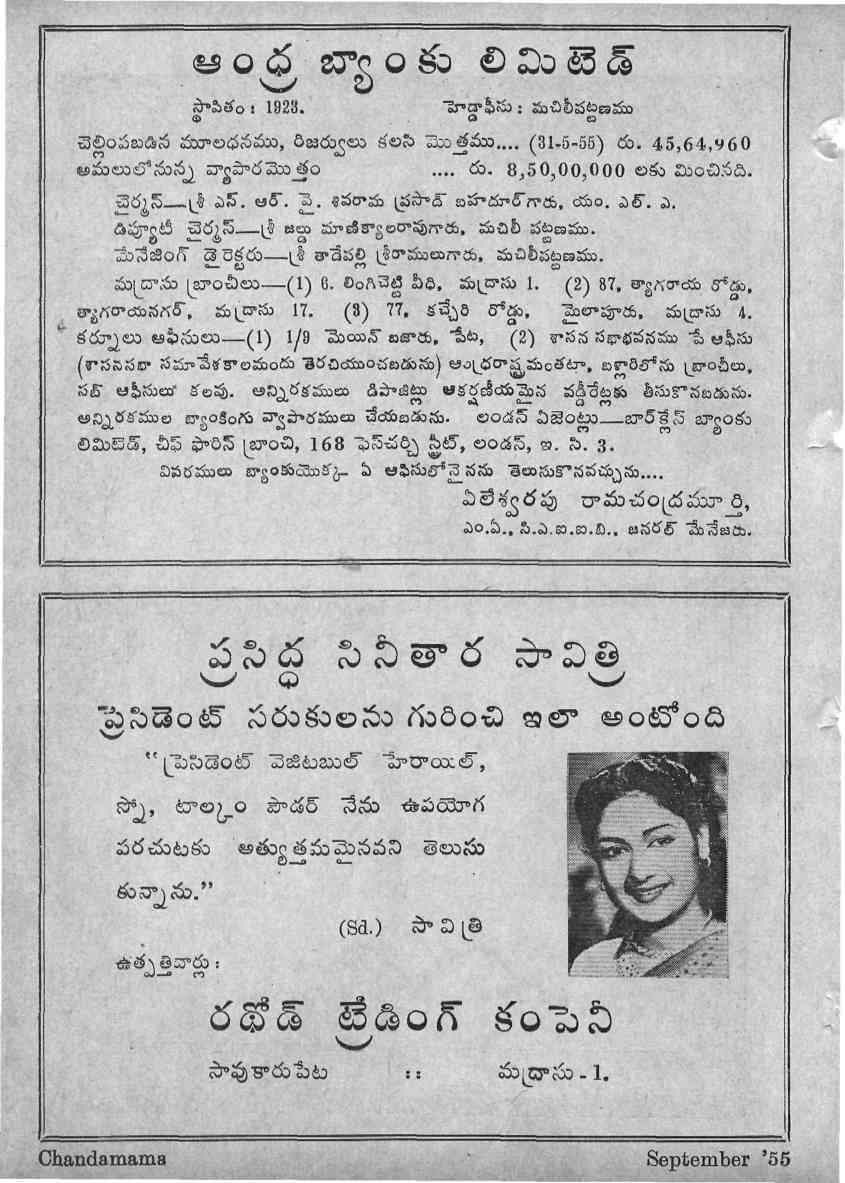 ఆంధ్ర బ్యాంకు లిమిటెడ్
స్థాపితం : 1923. హెడ్డాఫీసు : మచిలీపట్టణము
చెల్లింపబడిన మూలధనము, రిజర్వులు కలసి మొత్తము.... (31-5-55) రు. 45,64,960
అమలులోనున్న వ్యాపారమొత్తం .... రు. 8,50,00,000 లకు మించినది.
చైర్మన్—శ్రీ ఎన్. ఆర్. వై. శివరామ ప్రసాద్ బహదూర్‌గారు, యం. ఎల్. ఎ.
డిప్యూటీ చైర్మన్—శ్రీ జల్దు మాణిక్యాలరావుగారు, మచిలీ పట్టణము.
మేనేజింగ్ డైరెక్టరు—శ్రీ తాడేపల్లి శ్రీరాములుగారు, మచిలీపట్టణము.
మద్రాసు బ్రాంచీలు—(1) 6. లింగిచెట్టి వీధి, మద్రాసు 1. (2) 87, త్యాగరాయ రోడ్డు,
త్యాగరాయనగర్, మద్రాసు 17. (3) 77, కచ్చేరి రోడ్డు, మైలాపూరు, మద్రాసు 4.
కర్నూలు ఆఫీసులు—(1) 1/9 మెయిన్ బజారు, పేట, (2) శాసన సభాభవనము పే ఆఫీసు
(శాసనసభా సమావేశకాలమందు తెరచియుంచబడును) ఆంధ్రరాష్ట్రమంతటా, బళ్లారిలోను బ్రాంచీలు,
సబ్ ఆఫీసులు కలవు. అన్నిరకములు డిపాజిట్లు ఆకర్షణీయమైన వడ్డీరేట్లకు తీసుకొనబడును.
అన్నిరకముల బ్యాంకింగు వ్యాపారములు చేయబడును. లండన్ ఏజెంట్లు—బార్‌క్లేస్ బ్యాంకు
లిమిటెడ్, చీఫ్ ఫారిన్ బ్రాంచి, 168 ఫెన్‌చర్చి స్ట్రీట్, లండన్, ఇ. సి. 3.
వివరములు బ్యాంకుయొక్క ఏ ఆఫీసులోనైనను తెలుసుకొనవచ్చును....
ఏలేశ్వరపు రామచంద్రమూర్తి,
ఎం.ఏ., సి.ఎ.ఐ.ఐ.బి., జనరల్ మేనేజరు.
ప్రసిద్ధ సినీతార సావిత్రి
ప్రెసిడెంట్ సరుకులను గురించి ఇలా అంటోంది
“ప్రెసిడెంట్ వెజిటబుల్ హేరాయిల్,
స్నో, టాల్కం పౌడర్ నేను ఉపయోగ
పరచుటకు అత్యుత్తమమైనవని తెలుసు
కున్నాను.”
(Sd.) సావిత్రి
ఉత్పత్తివార్లు :
రథోడ్ ట్రేడింగ్ కంపెనీ
సావుకారుపేట :: మద్రాసు - 1.
Chandamama September '55